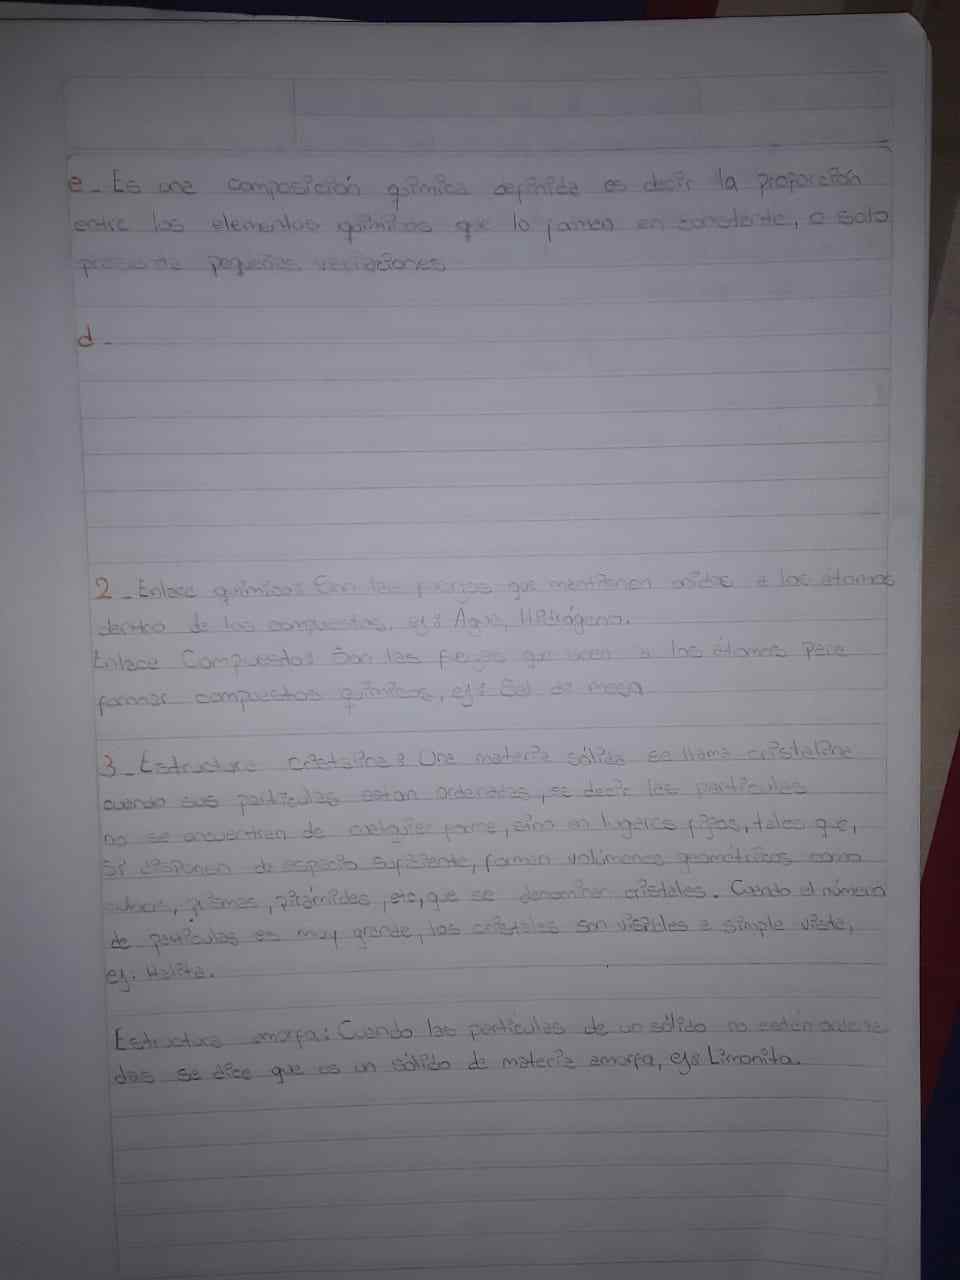 e_ Es una composición química definida es decir la proporción
entre los elementos químicos que lo forman en constante, o solo
presenta pequeñas variaciones
d_
2_ Enlace químicos: Son las fuerzas que mantienen unidos a los átomos
dentro de los compuestos, ej: Agua, Hidrógeno.
Enlace Compuestos: Son las fuerzas que unen a los átomos para
formar compuestos químicos, ej: Sal de mesa
3_ Estructura cristalina: Una materia sólida se llama cristalina
cuando sus partículas estan ordenadas, se decir las partículas
no se encuentran de cualquier forma, sino en lugares fijos, tales que,
si disponen de espacio suficiente, forman volúmenes geométricos como
cubos, prismas, pirámides, etc, que se denominan cristales. Cuando el número
de partículas es muy grande, los cristales son visibles a simple vista,
ej. Halita.
Estructura amorfa: Cuando las partículas de un sólido no están ordena
das se dice que es un sólido de materia amorfa, ej: Limonita.